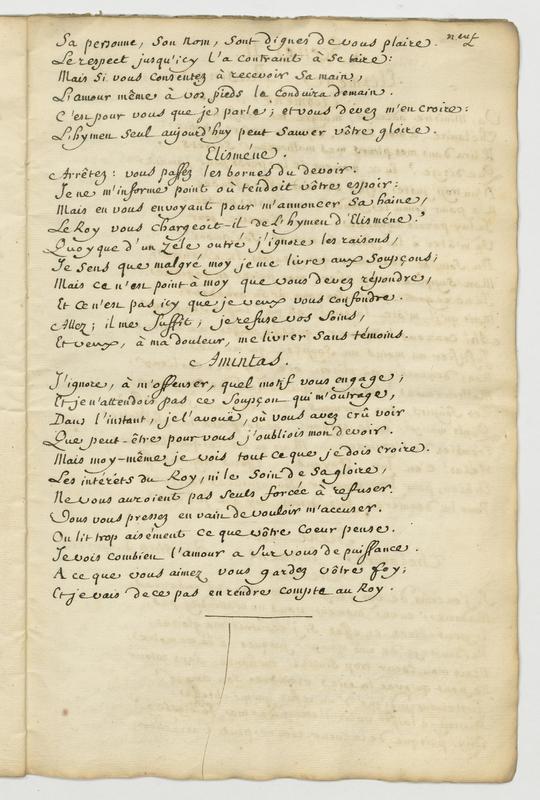 neuf
Sa personne, Son Nom, Sont dignes de vous plaire.
Le respect jusqu'icy l'a contraint à Se taire:
Mais si vous consentez à recevoir Sa main,
L'amour même à vos pieds le Conduira demain.
C'est pour vous que je parle; et vous devez m'en croire:
L'hymen Seul aujourd'huy peut Sauver vôtre gloire.
Elisméne.
Arrêtez: vous passez les bornes du devoir.
Je ne m'informe point où tendoit vôtre espoir:
Mais en vous envoyant pour m'annoncer Sa haine,
Le Roy vous Chargeoit-il de L'hymen d'Elisméne?
Quoyque d'un Zele outré j'ignore les raisons,
Je Sens que malgré moy je me livre aux Soupçons;
Mais Ce n'est point à moy que vous devez répondre,
Et Ce n'est pas icy que je veux vous confondre.
Allez; il me Suffit, je refuse vos Soins,
Et veux, à ma douleur, me livrer Sans témoins.
Amintas.
J'ignore, à m'offenser, quel motif vous engage;
Et je n'attendois pas ce Soupçon qui m'outrage,
Dans l'instant, je l'avouë, où vous avez crû voir
Que peut-être pour vous j'oubliois mon devoir.
Mais moy-même je vois tout ce que je dois croire.
Les intérêts du Roy, ni le Soin de Sa gloire,
Ne vous auroient pas Seuls forcée à refuser.
Vous vous pressez en vain de vouloir m'accuser.
On lit trop aisément Ce que vôtre Coeur pense.
Je vois combien l'amour a Sur vous de puissance.
A ce que vous aimez vous gardez vôtre foy;
Et je vais de ce pas en rendre Compte au Roy.